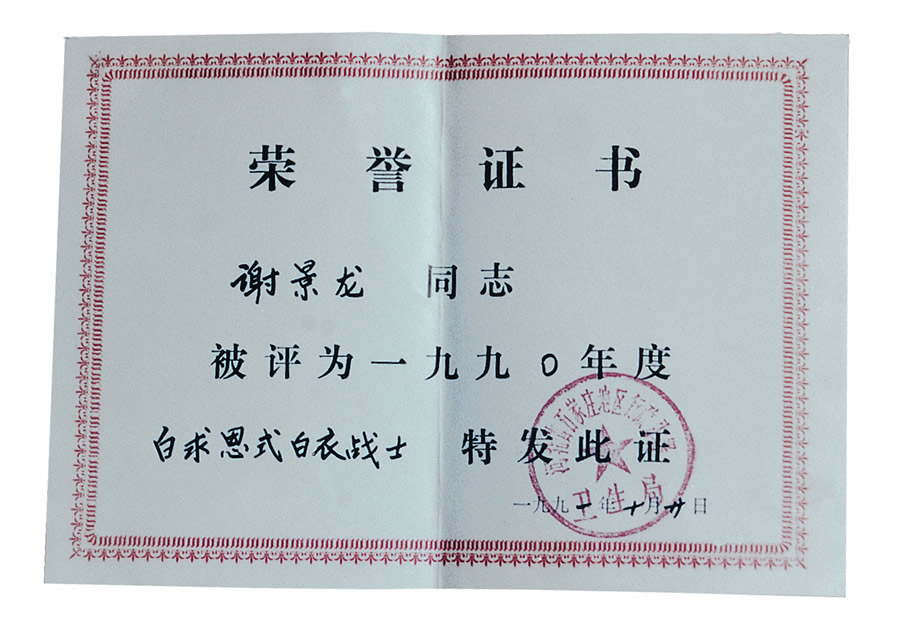 荣誉证书
谢景龙 同志
被评为一九九0年度
白求恩式白衣战士 特发此证
一九九一年十月廿日
卫生局